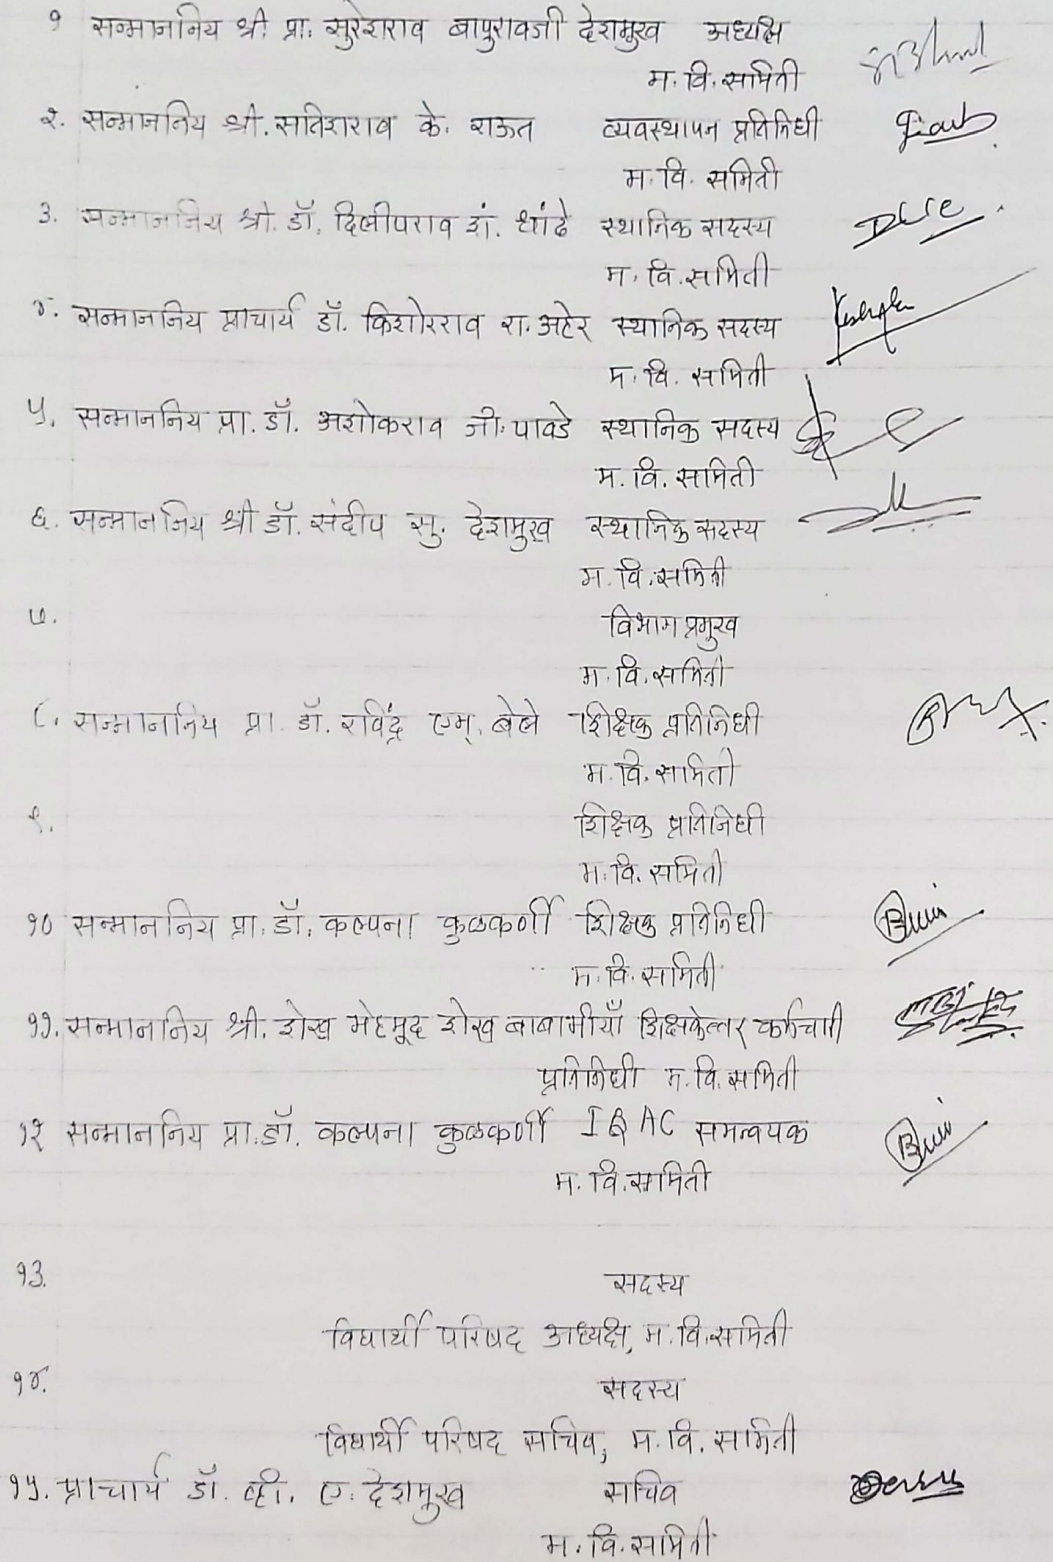 १ सन्माननिय श्री. प्रा. सुरेशराव बापुरावजी देशमुख अध्यक्ष
म. वि. समिती
२. सन्माननिय श्री. सतिशराव के. राऊत व्यवस्थापन प्रतिनिधी
म. वि. समिती
३. सन्माननिय श्री. डॉ. दिलीपराव शं. धांदे स्थानिक सदस्य
म. वि. समिती
४. सन्माननिय प्राचार्य डॉ. किशोरराव रा. अहेर स्थानिक सदस्य
म. वि. समिती
५. सन्माननिय प्रा. डॉ. अशोकराव जी. पावडे स्थानिक सदस्य
म. वि. समिती
६. सन्माननिय श्री डॉ. संदीप सु. देशमुख स्थानिक सदस्य
म. वि. समिती
७. विभाग प्रमुख
म. वि. समिती
८. सन्माननिय प्रा. डॉ. रविंद्र एम्. बेले शिक्षक प्रतिनिधी
म. वि. समिती
९. शिक्षक प्रतिनिधी
म. वि. समिती
१० सन्माननिय प्रा. डॉ. कल्पना कुळकर्णी शिक्षक प्रतिनिधी
म. वि. समिती
११. सन्माननिय श्री. शेख मेहमूद शेख बाबामीयाँ शिक्षकेत्तर कर्मचारी
प्रतिनिधी म. वि. समिती
१२ सन्माननिय प्रा. डॉ. कल्पना कुळकर्णी IQAC समन्वयक
म. वि. समिती
१३. सदस्य
विद्यार्थी परिषद अध्यक्ष, म. वि. समिती
१४. सदस्य
विद्यार्थी परिषद सचिव, म. वि. समिती
१५. प्राचार्य डॉ. व्ही. ए. देशमुख सचिव
म. वि. समिती